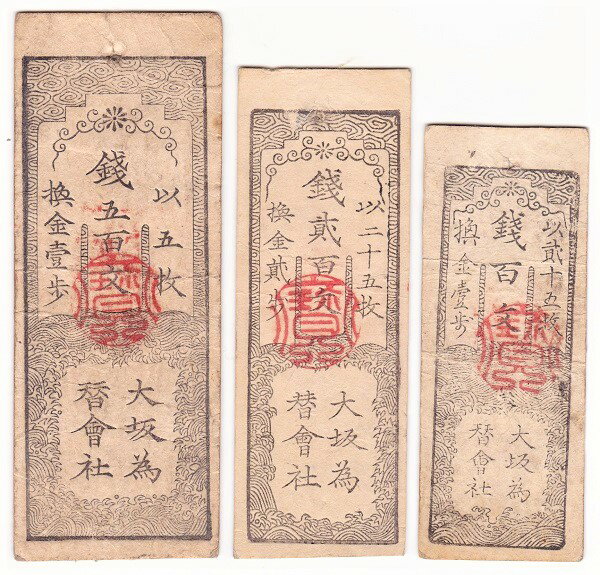 以五枚
錢五百文
換金壹歩
大坂為
替會社
以二十五枚
錢貳百文
換金貳歩
大坂為
替會社
以貳十五枚
錢百文
換金壹歩
大坂為
替會社